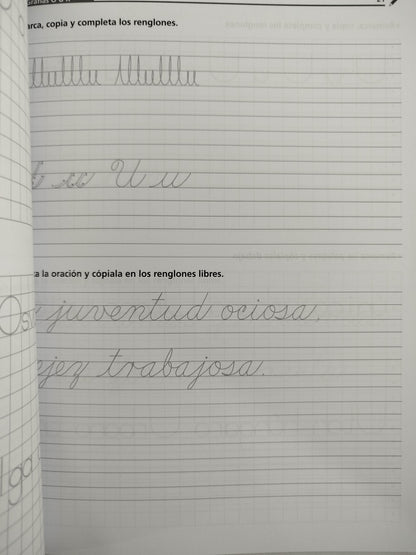 Grafías U u
21
arca, copia y completa los renglones.
u u U u
ta la oración y cópiala en los renglones libres.
juventud ociosa,
ejez trabajosa.
Os
lga